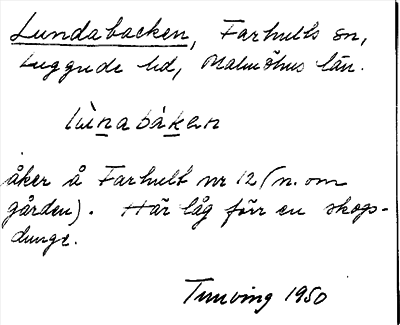 Lundabacken, Farhults sn,
Luggude hd, Malmöhus län.
lùnabàken
åker å Farhult nr 12 (n. om
gården). Här låg förr en skogs-
dunge.
1950